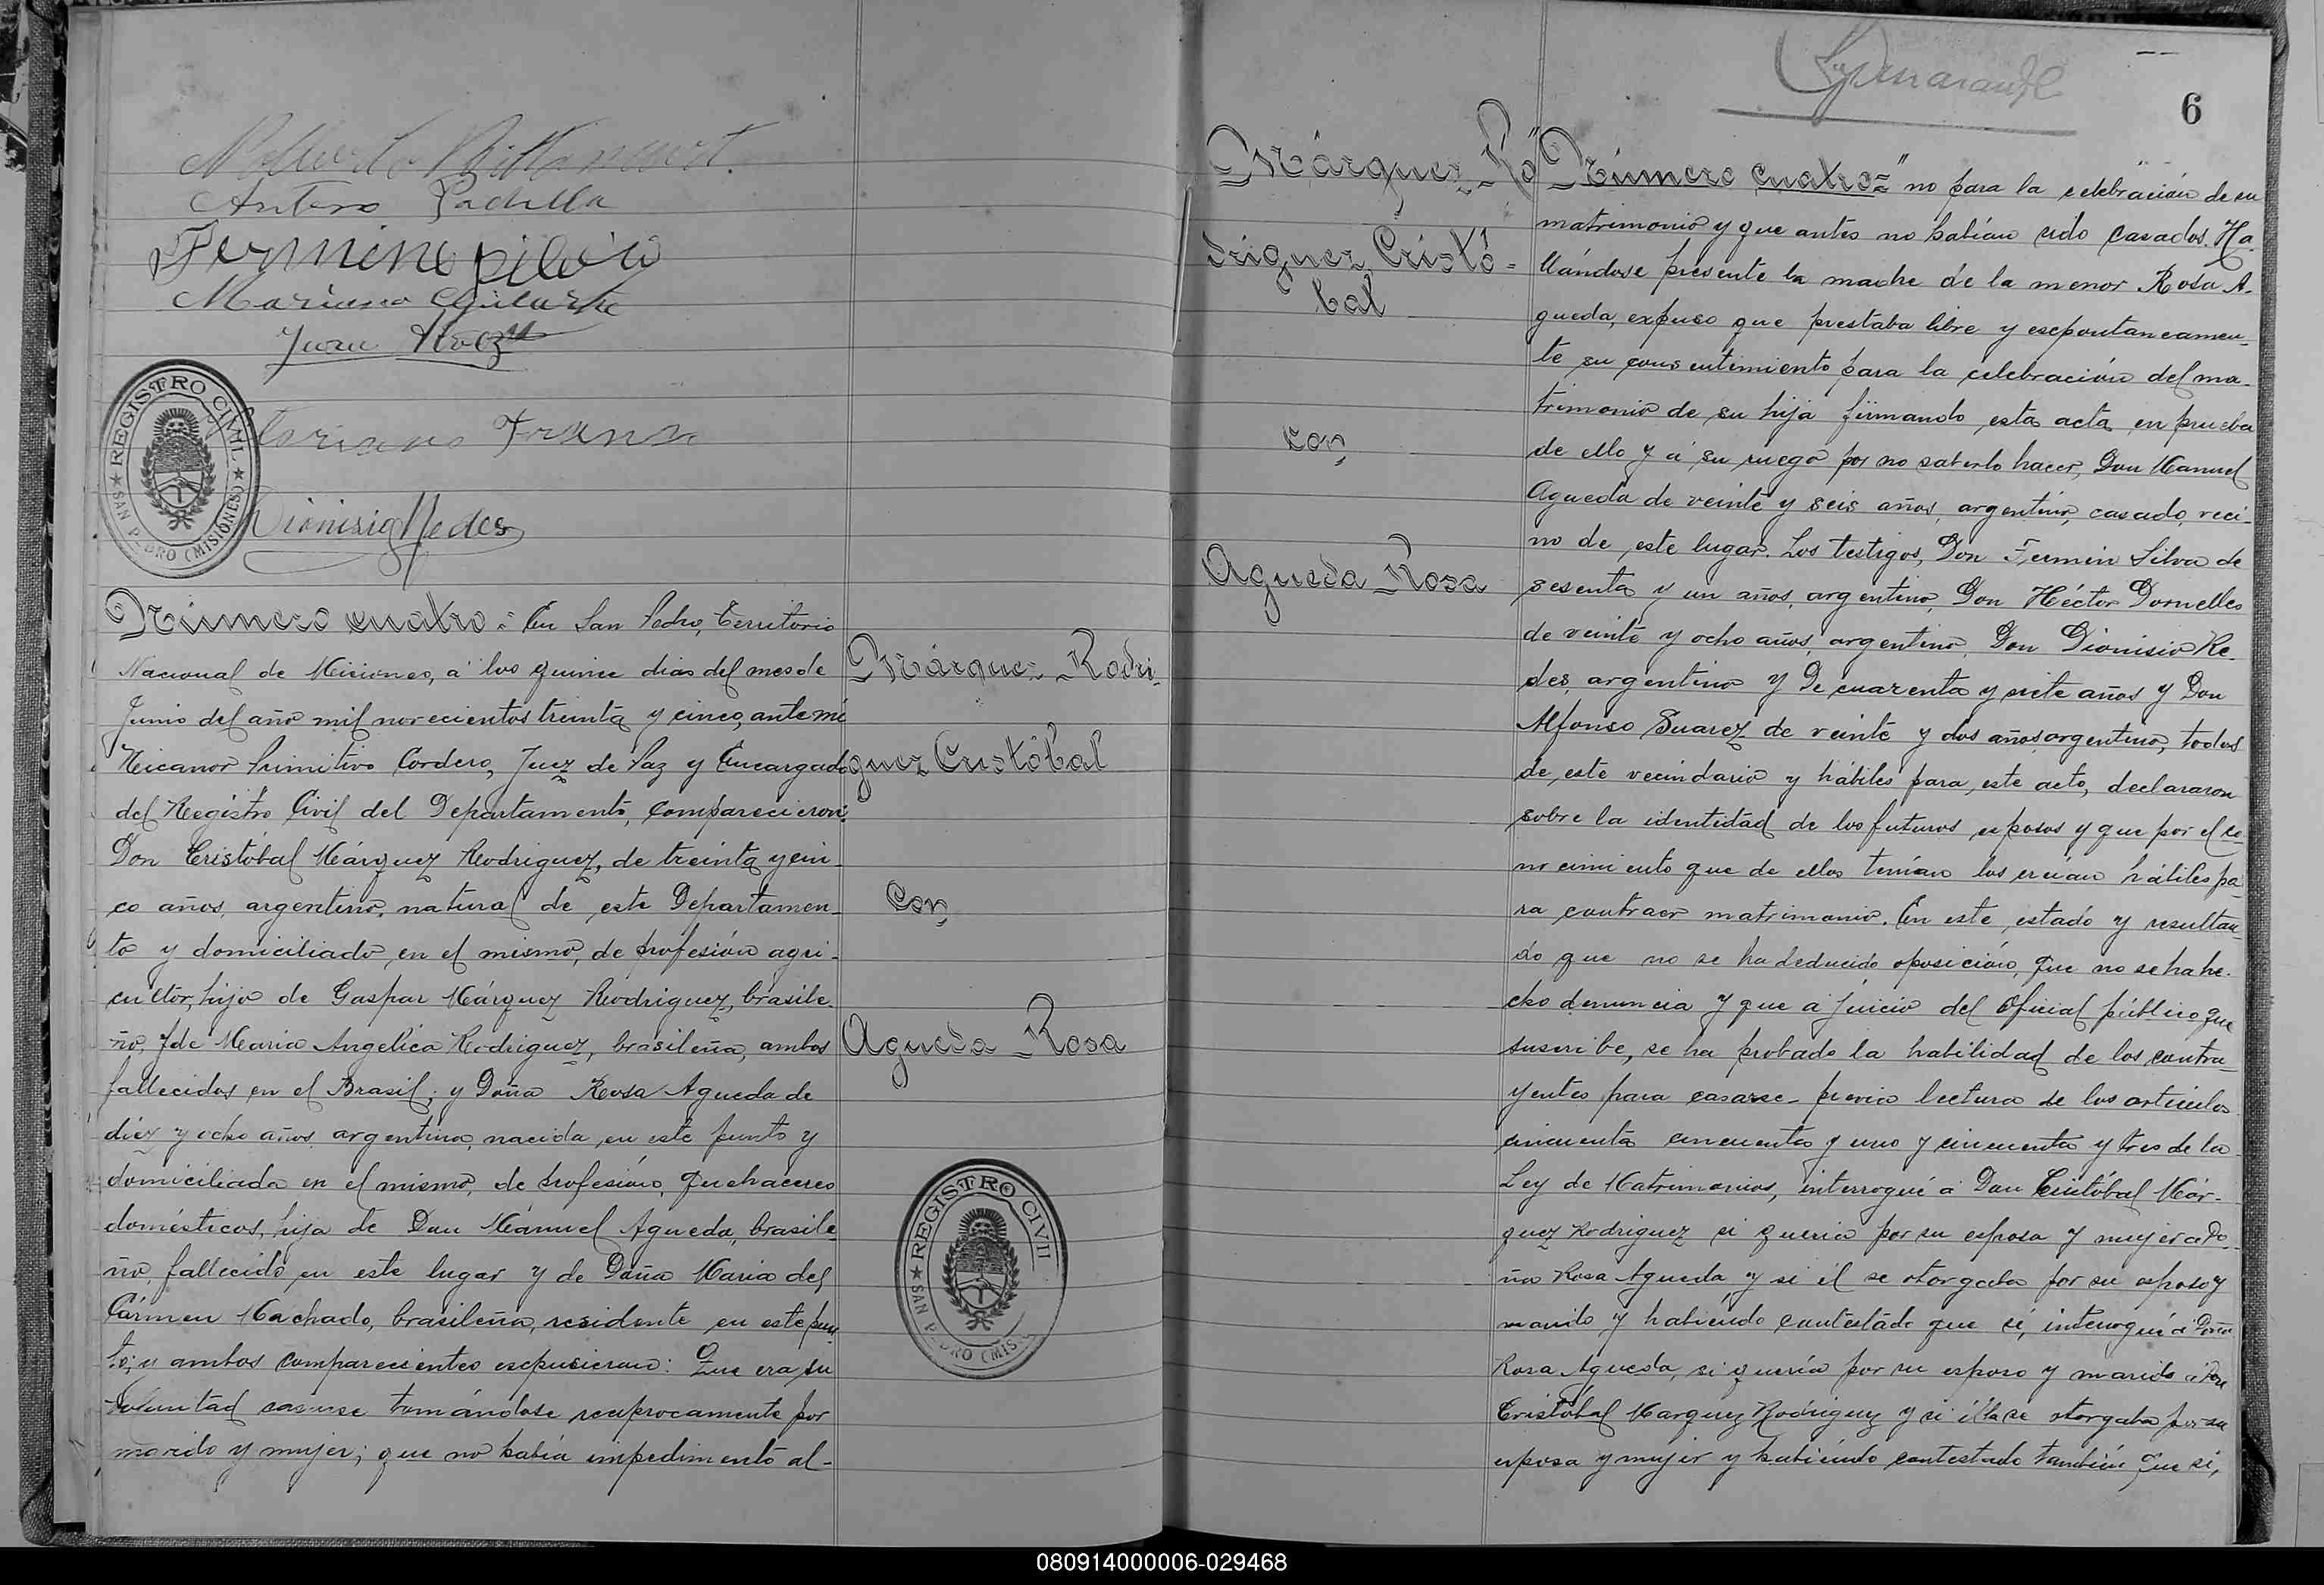 Antero Padilla
Juan
Dionisio Redes
REGISTRO CIVIL
SAN PEDRO (MISIONES)
Número cuatro: En San Pedro, Territorio
Nacional de Misiones, a los quince dias del mes de
Junio del año mil novecientos treinta y cinco, ante mí
Nicanor Primitivo Cordero, Juez de Paz y Encargado
del Registro Civil del Departamento, comparecieron:
Don Cristóbal Márquez Rodriguez, de treinta y cin-
co años, argentino, natural de este Departamen-
to y domiciliado en el mismo, de profesión agri-
cultor, hijo de Gaspar Márquez Rodriguez, brasile-
ño, y de Maria Angelica Rodriguez, brasileña, ambos
fallecidos en el Brasil; y Doña Rosa Agueda de
diez y ocho años, argentina, nacida en este punto y
domiciliada en el mismo, de profesión, quehaceres
domésticos, hija de Don Mánuel Agueda, brasile-
ño, fallecido en este lugar y de Doña Maria del
Cármen Machado, brasileña, residente en este pun
to; y ambos comparecientes expusieron: Que era su
voluntad casarse tomándose reciprocamente por
marido y mujer; que no había impedimento al-
Márquez Rodri-
guez Cristóbal
Con
Agueda Rosa
REGISTRO CIVIL
SAN PEDRO (MIS
6
Márquez Ro
driguez, Cristó-
bal
con
Agueda Rosa
"Número cuatro" no para la celebración de su
matrimonio y que antes no habían sido casados. Ha
llándose presente la madre de la menor Rosa A-
gueda, expuso que prestaba libre y espontaneamen-
te su consentimiento para la celebración del ma-
trimonio de su hija firmando esta acta en prueba
de ello y á su ruego por no saberlo hacer, Don Manuel
Agueda de veinte y seis años, argentino, casado, veci-
no de este lugar. Los testigos, Don Fermin Silva de
sesenta y un años, argentino, Don Héctor Dornelles
de veinte y ocho años, argentino, Don Dionisio Re-
des, argentino y de cuarenta y siete años y Don
Alfonso Suarez de veinte y dos años argentino, todos
de este vecindario y hábiles para este acto, declararon
sobre la identidad de los futuros esposos y que por el co-
nocimiento que de ellos tenían los creían hábiles pa
ra contraer matrimonio. En este estado y resultan-
do que no se ha deducido oposición, que no se ha he-
cho denuncia y que a juicio del Oficial público que
suscribe, se ha probado la habilidad de los contra-
yentes para casarse - previa lectura de los articulos
cincuenta cincuenta y uno y cincuenta y tres de la
Ley de Matrimonios, interrogué á Don Cristóbal Már-
quez Rodriguez si queria por su esposa y mujer a Do-
ña Rosa Agueda y si él se otorgaba por su esposo y
marido y habiendo contestado que sí, interrogué á Doña
Rosa Agueda, si quería por su esposo y marido á Don
Cristóbal Marquez Rodriguez y si élla se otorgaba por su
esposa y mujer y habiéndo contestado también que sí,
080914000006-029468